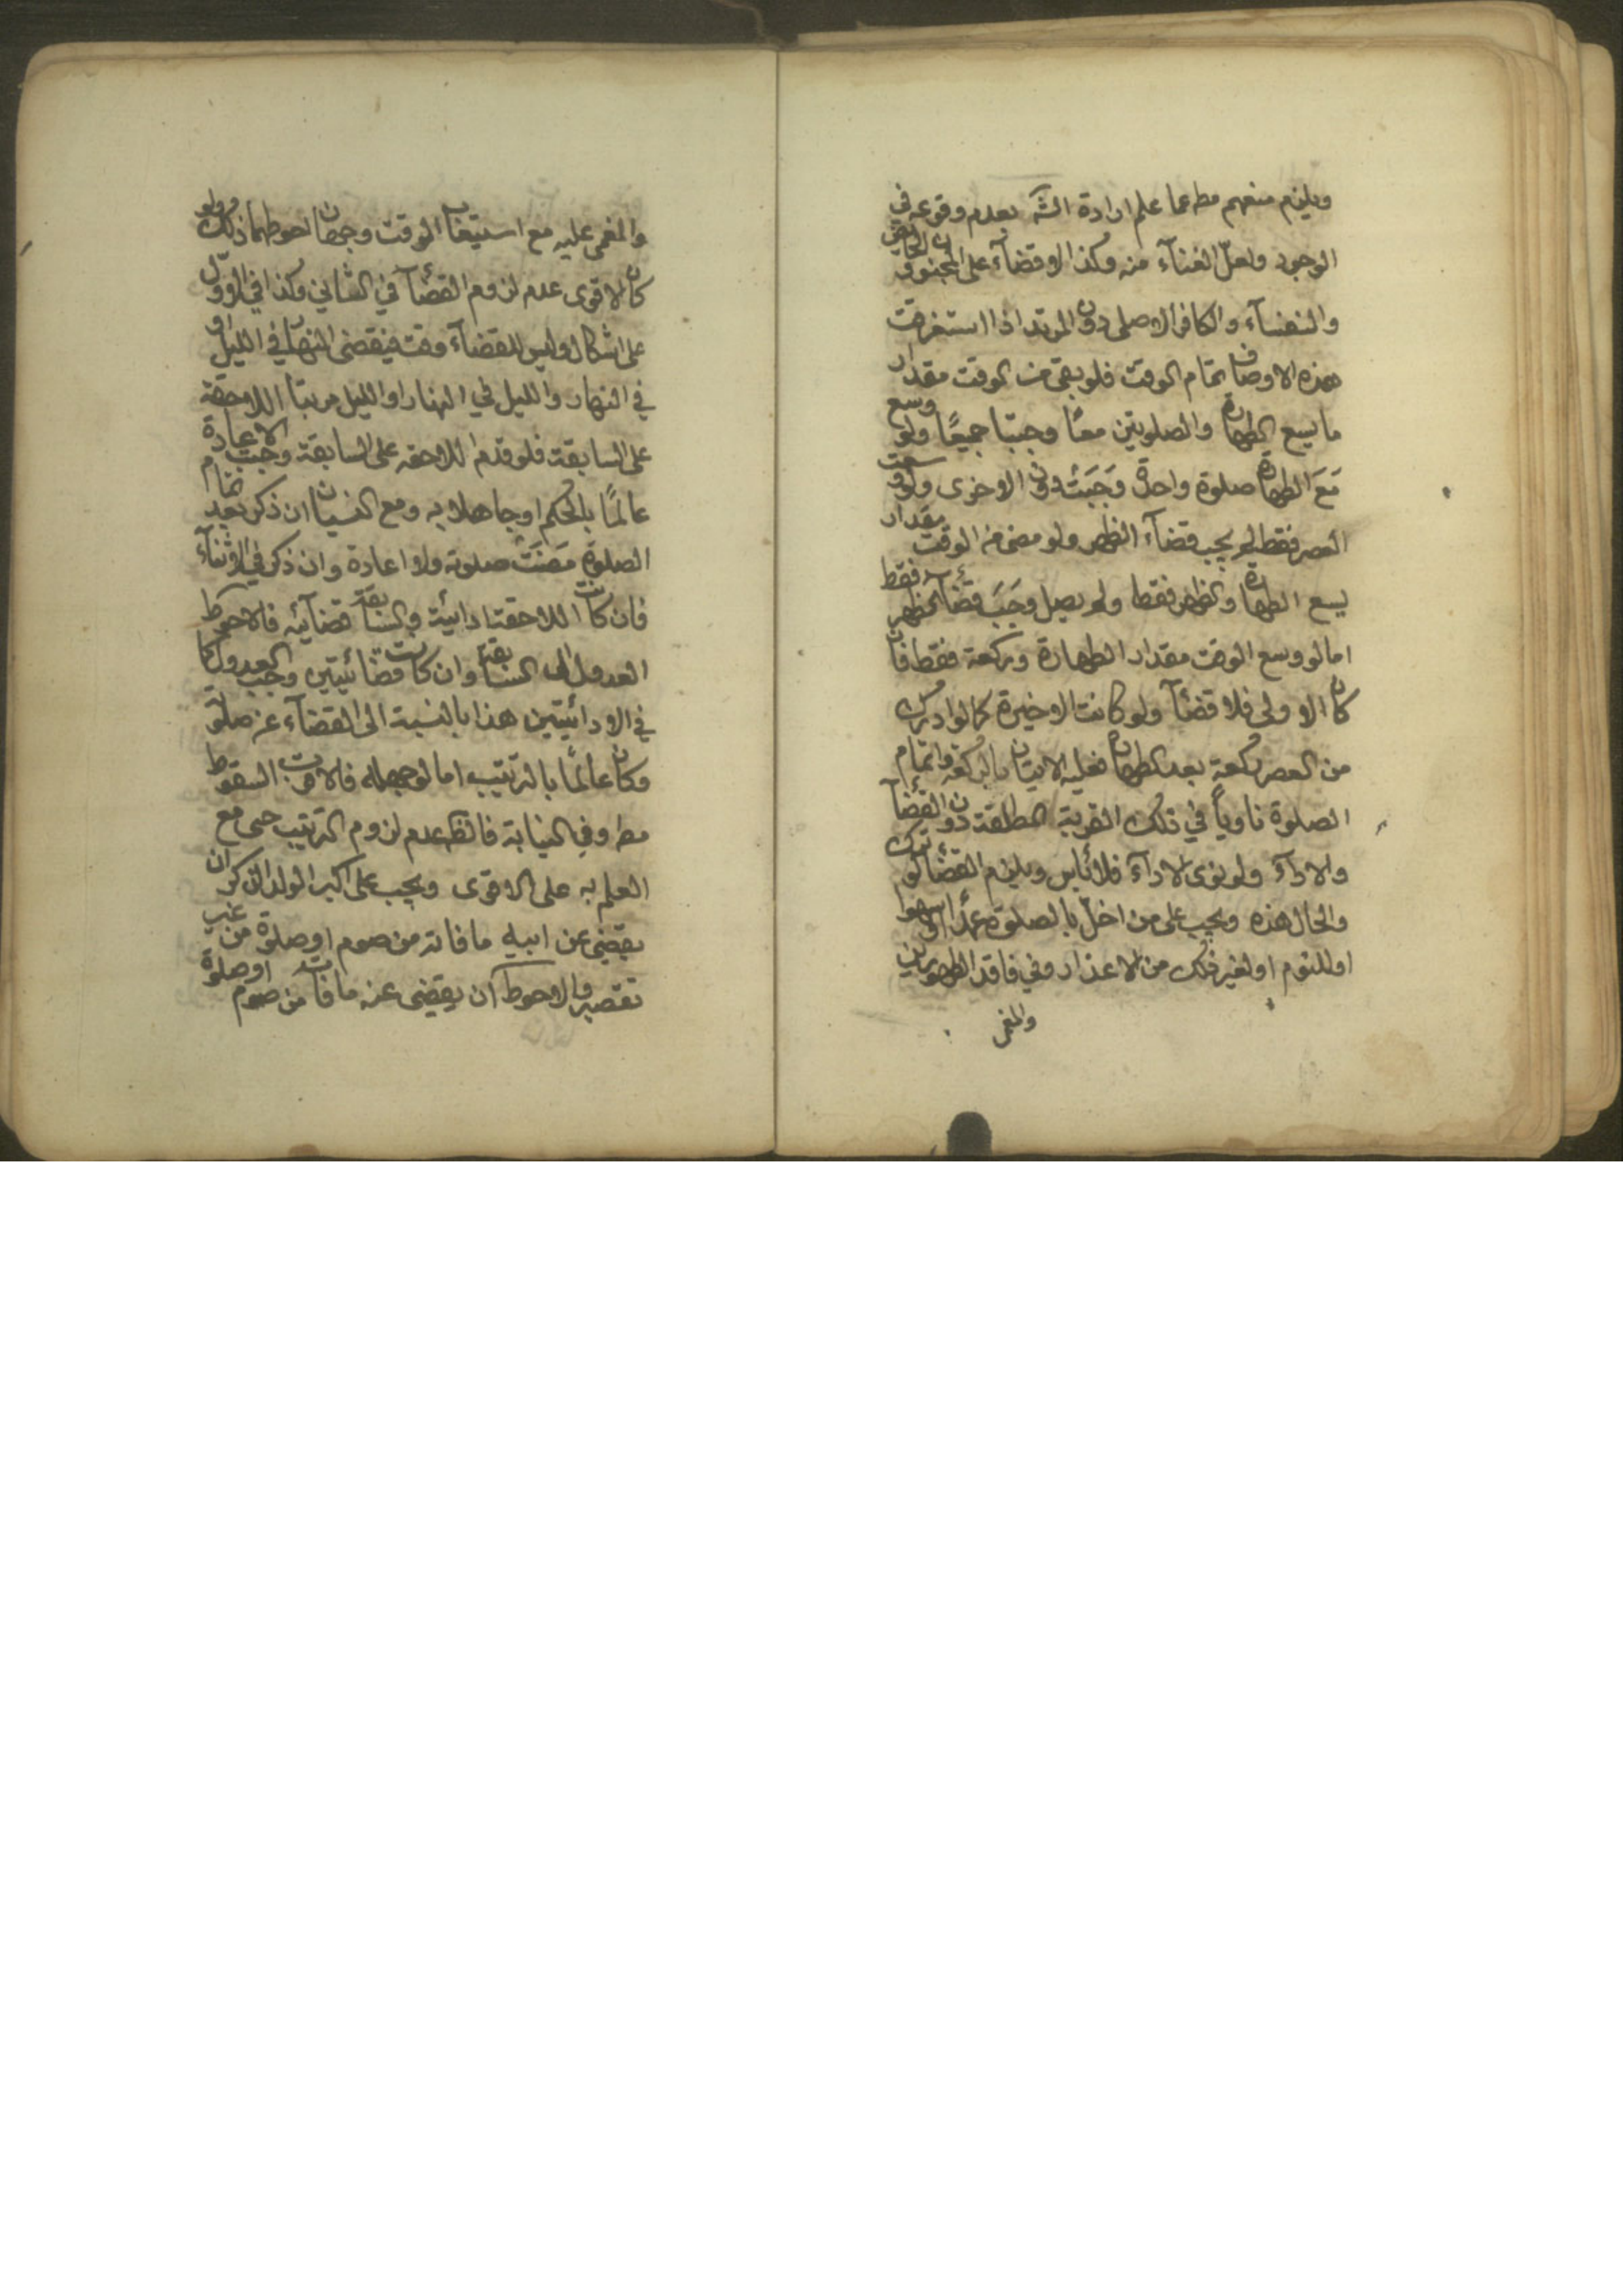 ويلزم منهم مط عما علم ارادة الشه بعدم وقوعه في
الوجود ولعل الغناء منه وكذا لا قضاء على المجنون والحائض
والنفسآء والكافر الاصلي دون المرتد اذا استغرقت
هذه الاوصاف تمام الوقت فلو بقي من الوقت مقدار
ما يسع الطهارة والصلوتين معًا وجبتا جميعًا ولو وسع
مَعَ الطهارة صلوة واحدة وَجَبَتْ دون الاخرى ولو وسعت
العصر فقط لم يجب قضآء الظهر ولو مضى من الوقت مقدار
يسع الطهارة والظهر فقط ولم يصل وَجَبَ قضآء الظهر فقط
اما لو وسع الوقت مقدار الطهارة وركعة فقط فان
كان الاولى فلا قضآء ولو كانت الاخيرة كما لو ادرك
من العصر ركعة بعد الطهارة فعليه الاتيان بالركعة واتمام
الصلوة ناوياً في ذلك القربة المطلقة دون القضآء
والادآء ولو نوى الادآء فلا بأس ويلزم القضآء لو ترك
والحال هذه ويجب على من اخلّ بالصلوة عمدًا او سهوا
او للنوم او لغير ذلك من الاعذار وفي فاقد الطهورين
والمغمى
والمغمى عليه مع استيعاب الوقت وجهان احوطهما ذلك ولو
كان الاقوى عدم لزوم القضآء في الثاني وكذا في الاول
على اشكال وليس للقضآء وقت فيقضى النهار في الليل او
في النهار والليل في النهار او الليل مرتبا اللاحقة
على السابقة فلو قدم اللاحقه على السابقة وجبت الاعادة
عالمًا بالحكم او جاهلا به ومع النسيان ان ذكر بعد تمام
الصلوة مَضَتْ صلوته ولا اعادة وان ذكر في الاثنآء
فان كانت اللاحقة ادائية والسابقة قضآئيه فالاحوط
العدول الى السابقة وان كانت قضائيتين وجب العدول كما
في الادائيتين هذا بالنسبة الى القضآء عن صلوته
وكان عالمًا بالترتيب اما لو جهله فالاقرب السقوط
مط وفي النيابة فالظ عدم لزوم الترتيب حتى مع
العلم به على الاقوى ويجب على اكبر الولد الذكر ان
يقضي عن ابيه ما فاته من صوم او صلوة من غير
تقصير والاحوط ان يقضي عنه ما فات من صوم او صلوة